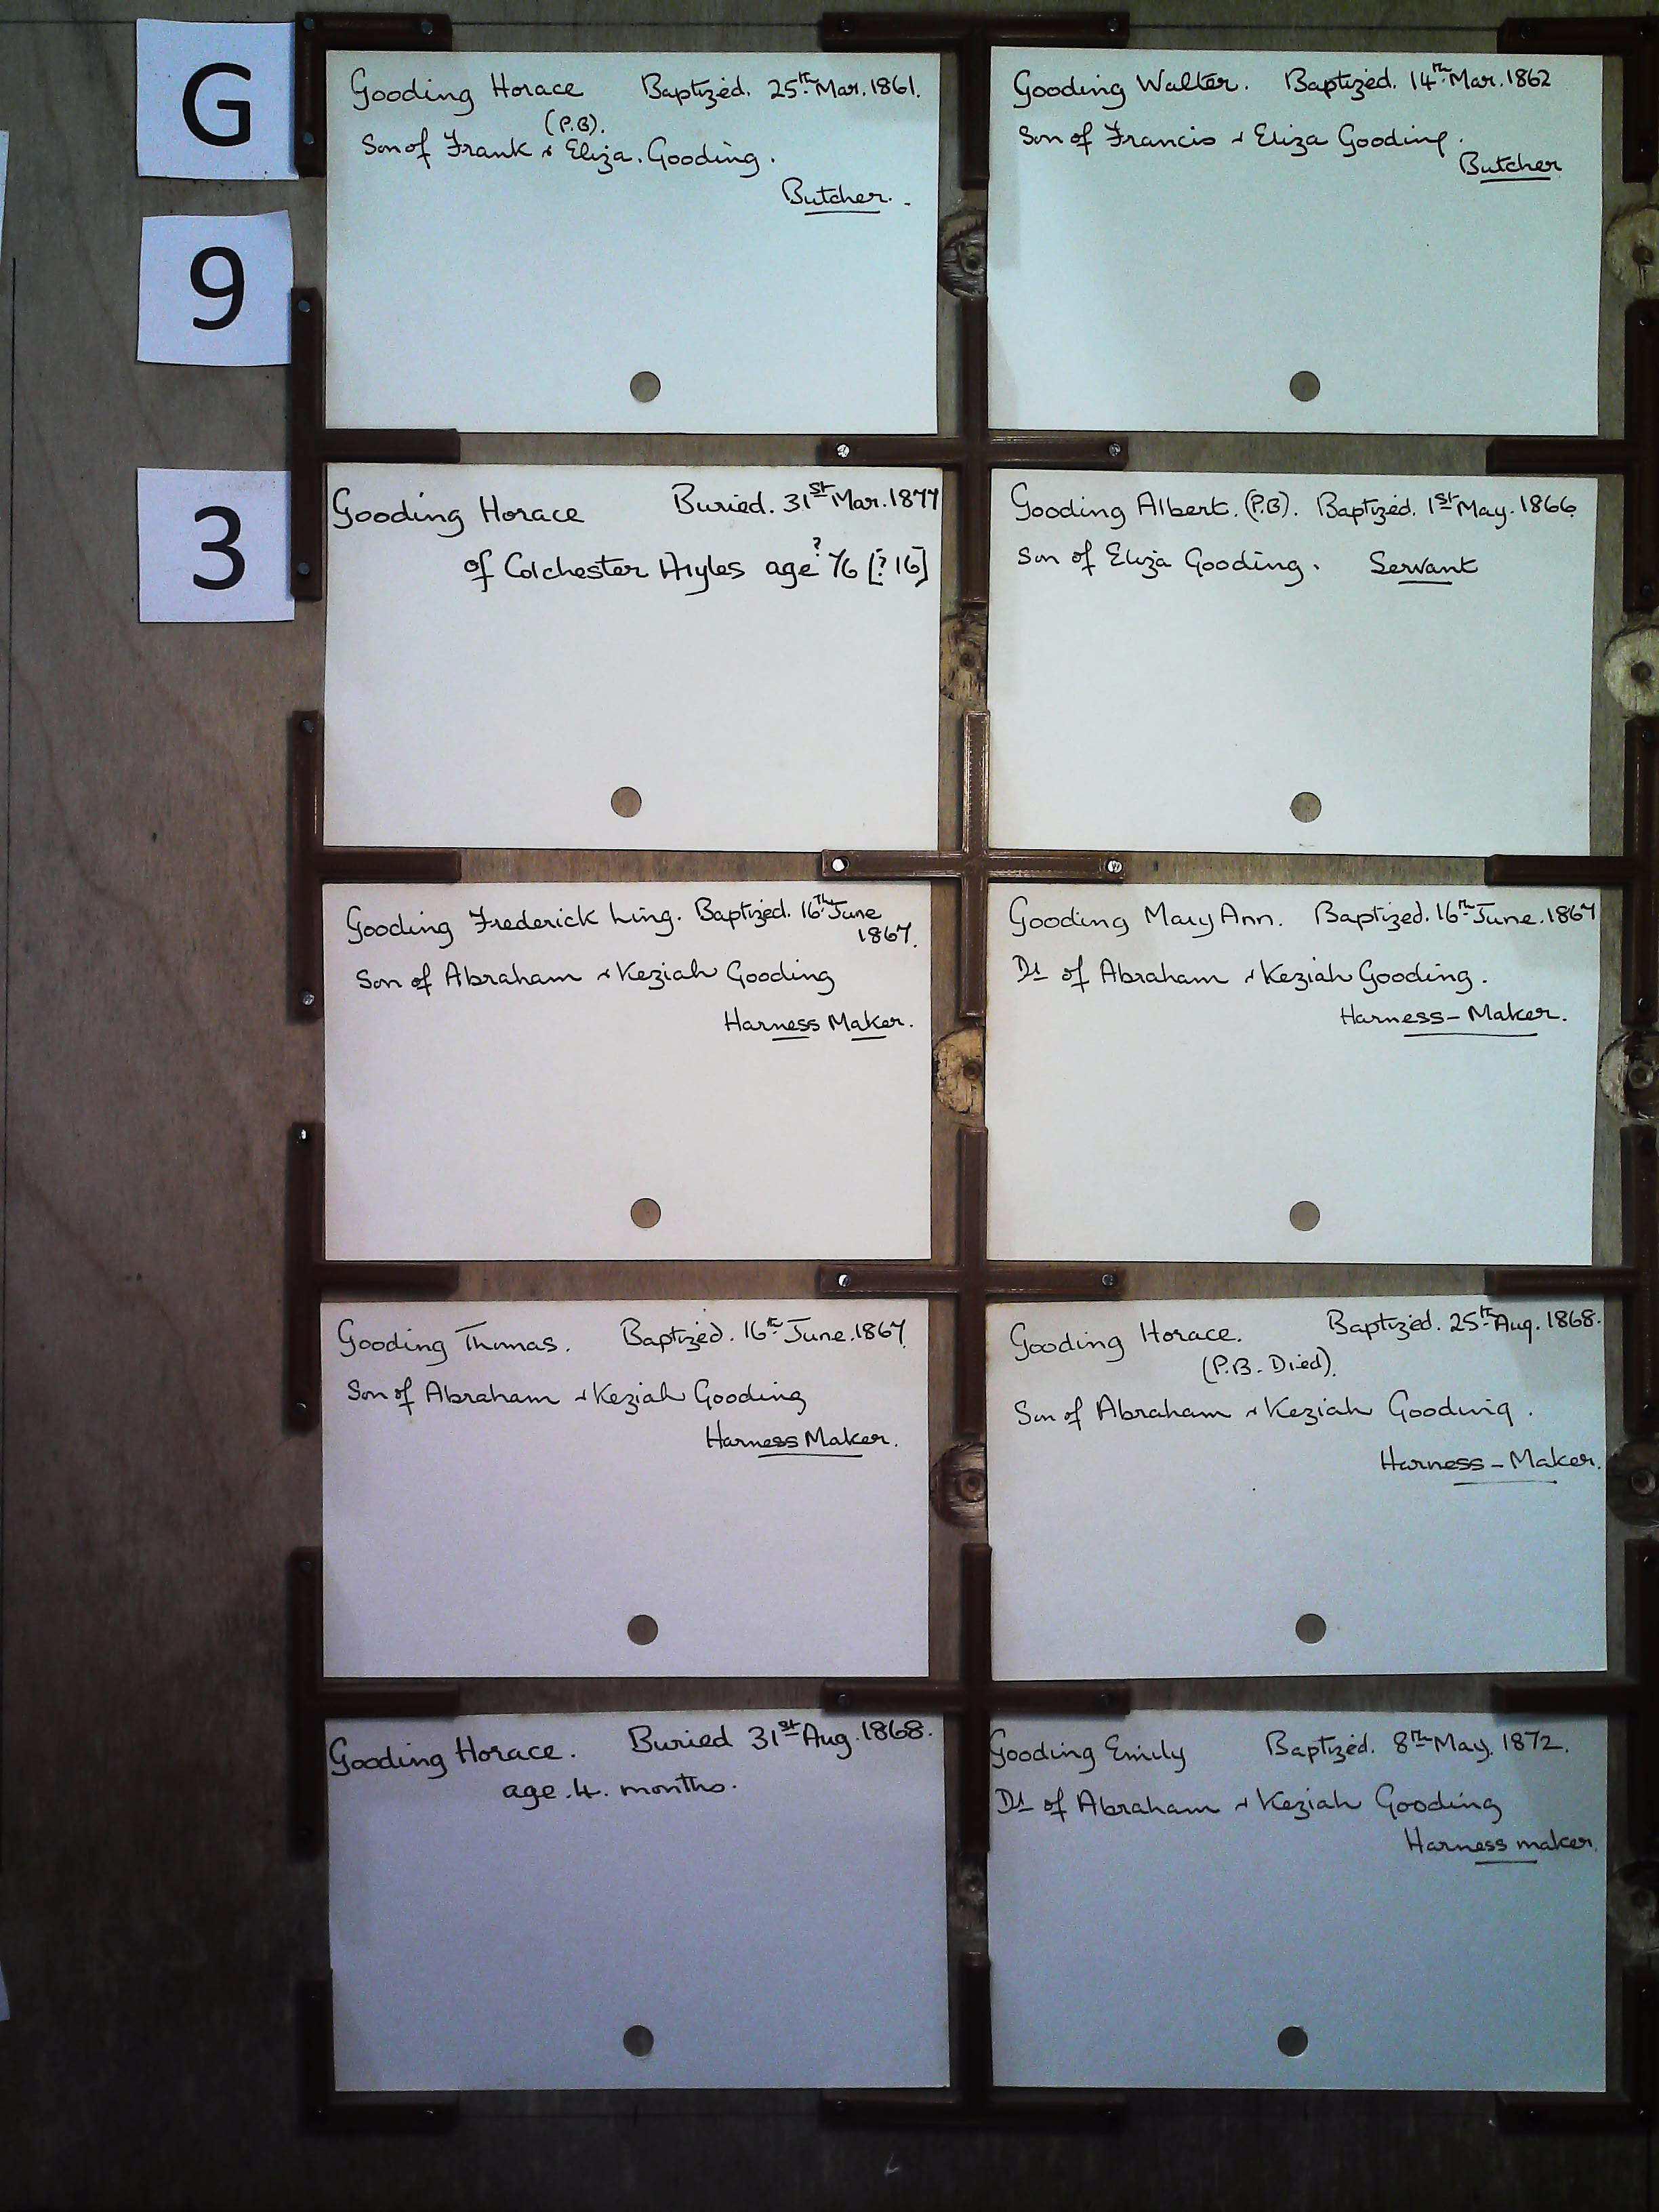 G
9
3
Gooding Horace Baptized. 25th Mar. 1861.
(P.B).
Son of Frank & Eliza. Gooding.
Butcher.
Gooding Walter. Baptized. 14th Mar. 1862
Son of Francis & Eliza Gooding.
Butcher
Gooding Horace Buried. 31st Mar. 1877
of Colchester age ? 76 [? 16]
Gooding Albert. (P.B). Baptized. 1st May. 1866.
Son of Eliza Gooding. Servant
Gooding Frederick Ling. Baptized. 16th June
1867.
Son of Abraham & Keziah Gooding
Harness Maker.
Gooding Mary Ann. Baptized. 16th June. 1867
Dr of Abraham & Keziah Gooding.
Harness-Maker.
Gooding Thomas. Baptized. 16th June. 1867.
Son of Abraham & Keziah Gooding
Harness Maker.
Gooding Horace. Baptized. 25th Aug. 1868.
(P.B. Died).
Son of Abraham & Keziah Gooding.
Harness-Maker.
Gooding Horace. Buried 31st Aug. 1868.
age. 4. months.
Gooding Emily Baptized. 8th May. 1872.
Dr of Abraham & Keziah Gooding
Harness maker.